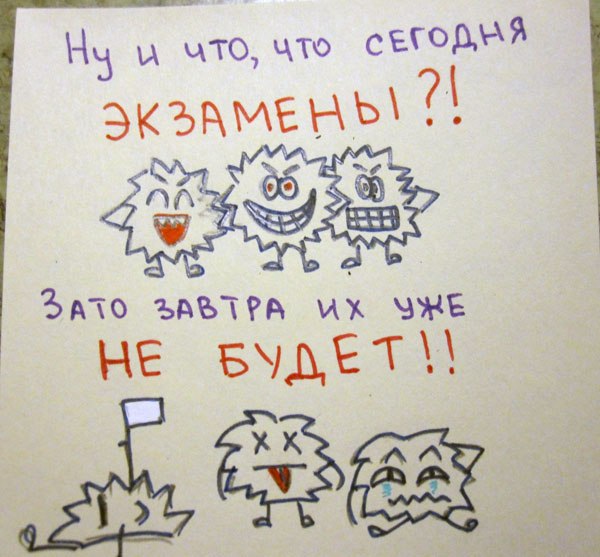 Ну и что, что сегодня
ЭКЗАМЕНЫ?!
Зато завтра их уже
НЕ БУДЕТ!!